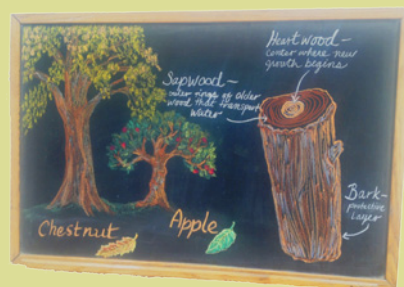 Heartwood –
center where new
growth begins
Sapwood –
outer rings of older
wood that transport
water
Bark –
protective
layer
Chestnut
Apple